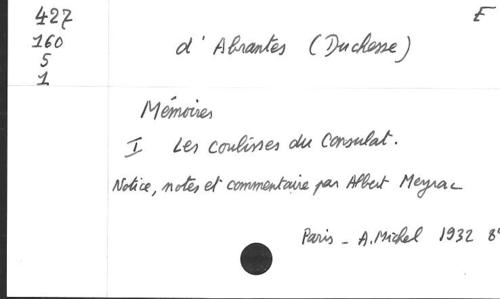 427
E
160
5
1
d'Abrantes (Duchesse)
Mémoires
I Les coulisses du Consulat.
Notice, notes et commentaire par Albert Meyrac
Paris - A. Michel 1932 8°